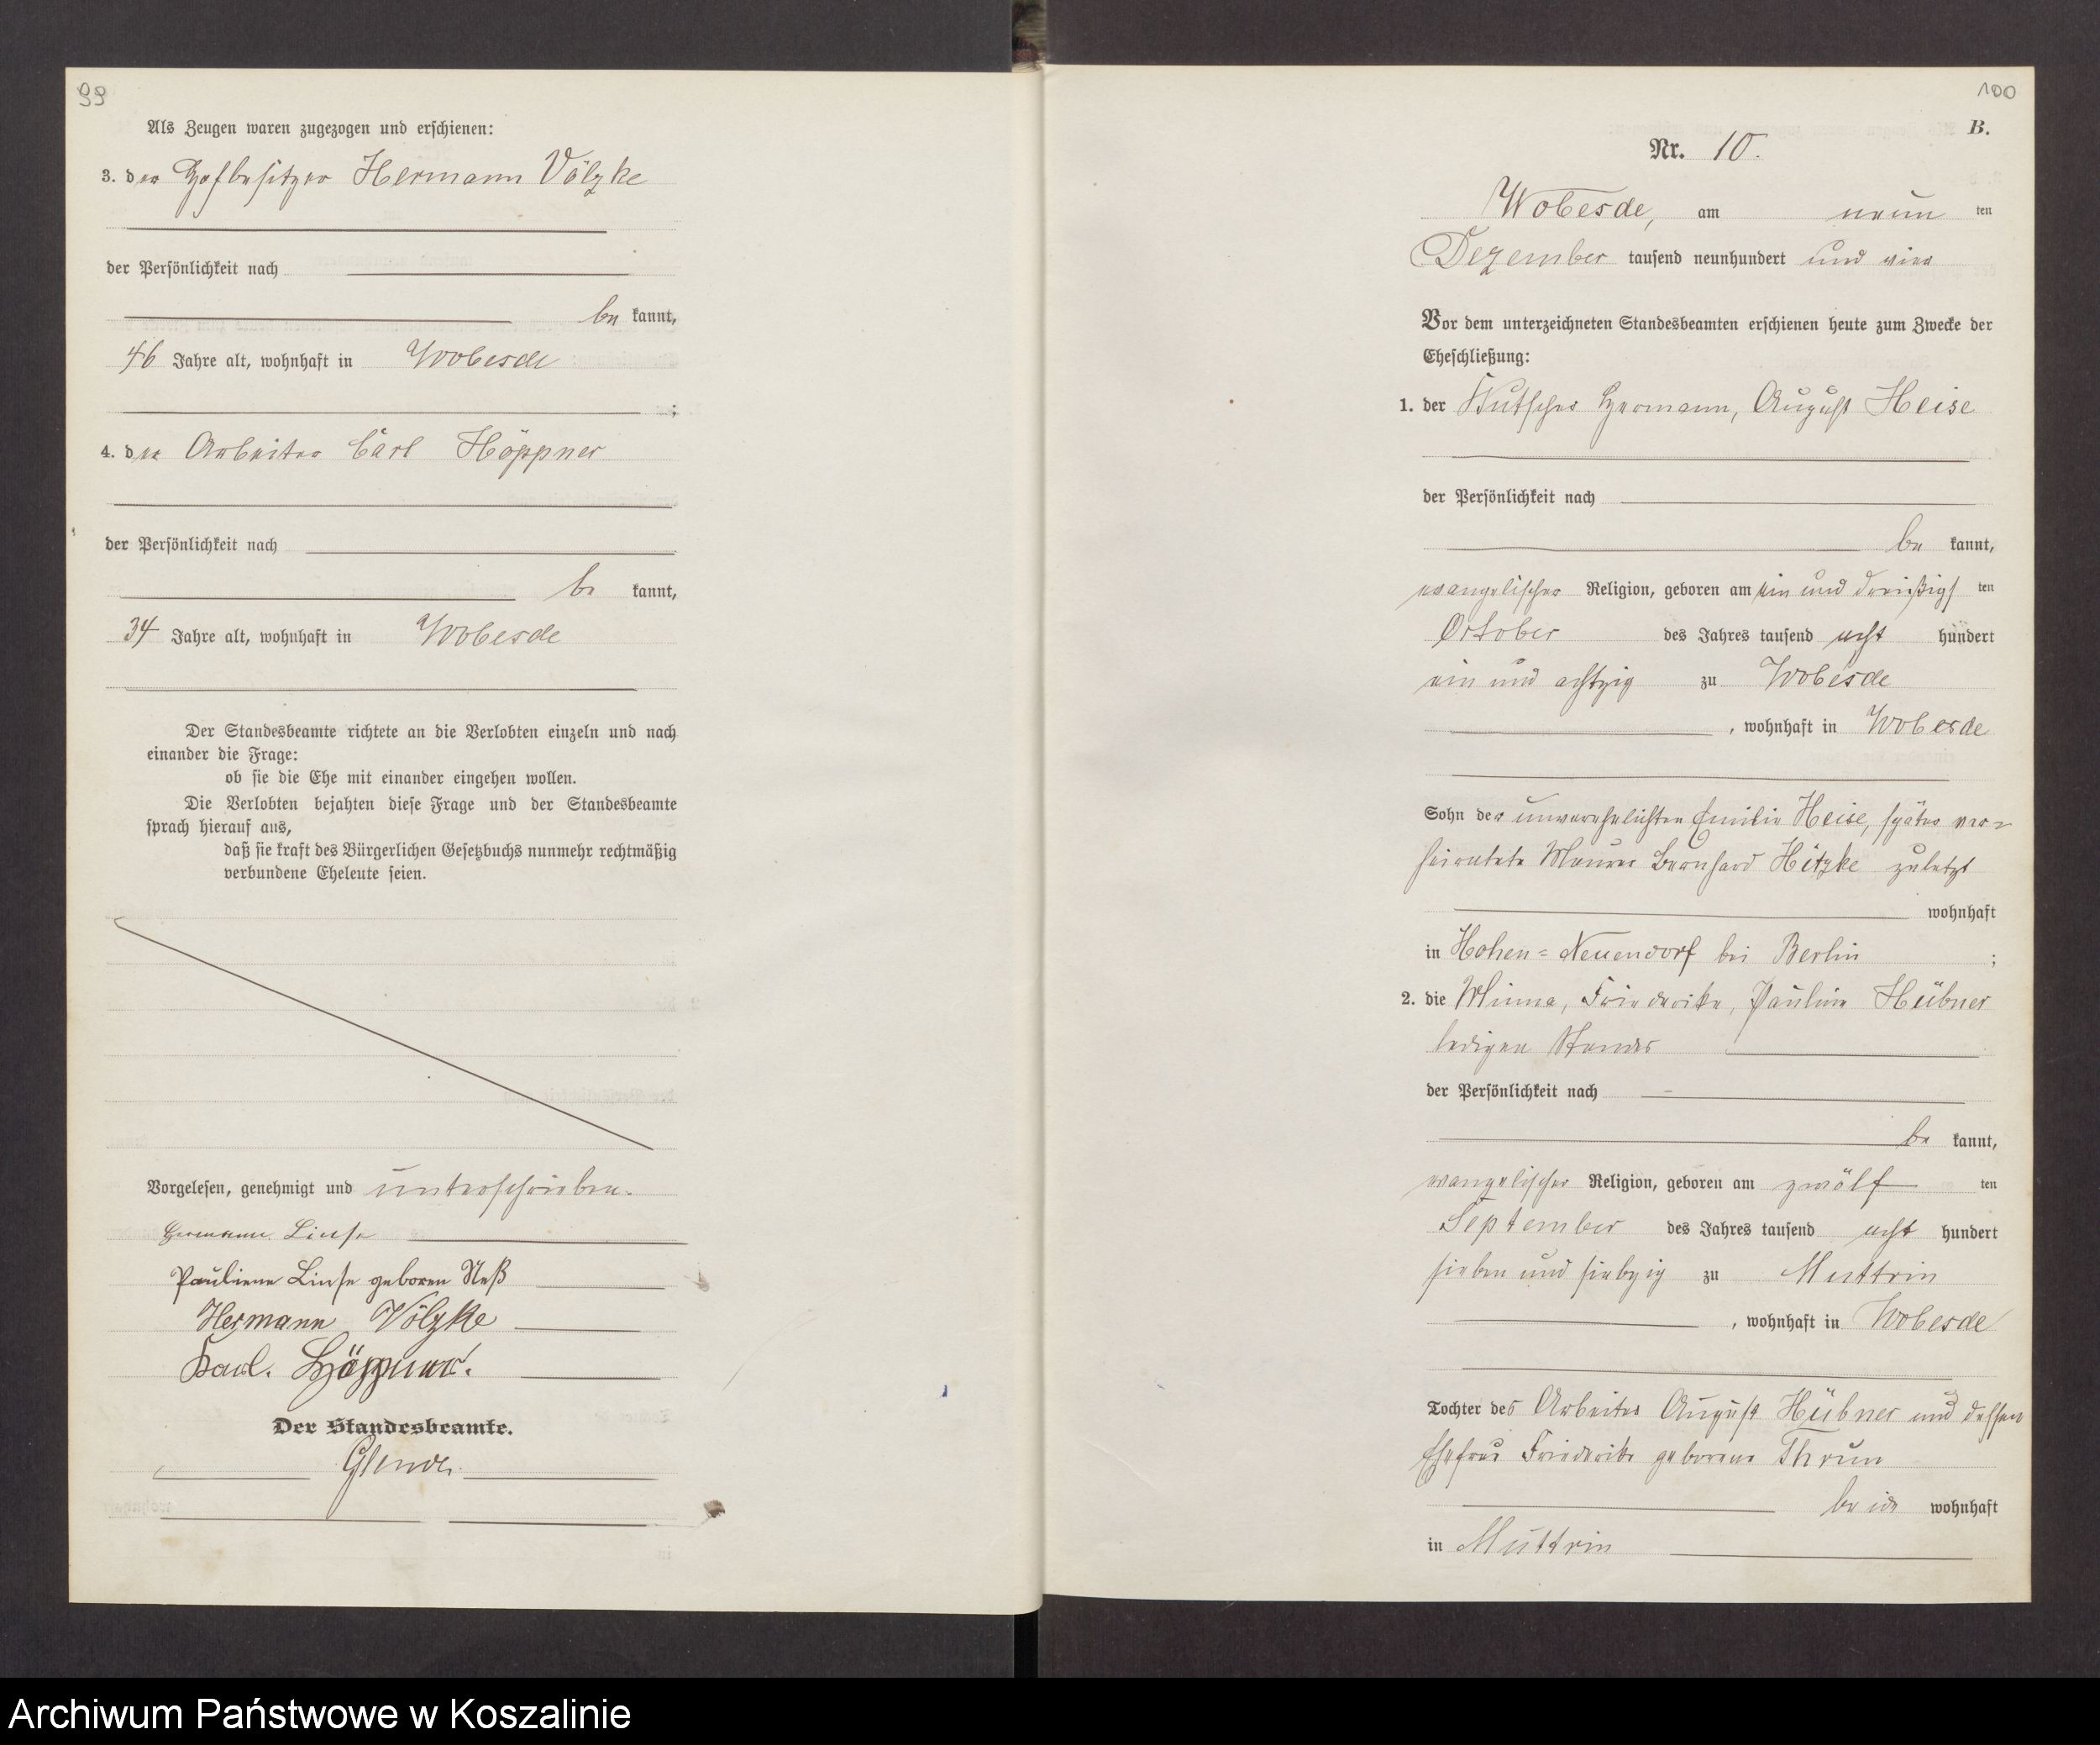 99
Als Zeugen waren zugezogen und erschienen:
3. der Hofbesitzer Hermann Völzke
der Persönlichkeit nach
be kannt,
46 Jahre alt, wohnhaft in Wobesde
;
4. der Arbeiter Carl Höppner
der Persönlichkeit nach
be kannt,
34 Jahre alt, wohnhaft in Wobesde
Der Standesbeamte richtete an die Verlobten einzeln und nach
einander die Frage:
ob sie die Ehe mit einander eingehen wollen.
Die Verlobten bejahten diese Frage und der Standesbeamte
sprach hierauf aus,
daß sie kraft des Bürgerlichen Gesetzbuchs nunmehr rechtmäßig
verbundene Eheleute seien.
Vorgelesen, genehmigt und unterschrieben.
Hermann Linse
Pauliene Linse geboren Neß
Hermann Völzke
Karl. Höppner.
Der Standesbeamte.
100
B.
Nr. 10.
Wobesde, am neun ten
Dezember tausend neunhundert und vier
Vor dem unterzeichneten Standesbeamten erschienen heute zum Zwecke der
Eheschließung:
1. der Kutscher Hermann, August Heise
der Persönlichkeit nach
be kannt,
evangelischer Religion, geboren am ein und dreißigs ten
October des Jahres tausend acht hundert
ein und achtzig zu Wobesde
, wohnhaft in Wobesde
Sohn der unverehelichten Emilie Heise, später ver=
heiratete Maurer Bernhard Hitzke zuletzt
wohnhaft
in Hohen=Neuendorf bei Berlin ;
2. die Minna, Friederike, Pauline Hübner
ledigen Standes
der Persönlichkeit nach
be kannt,
evangelischer Religion, geboren am zwölf ten
September des Jahres tausend acht hundert
sieben und siebzig zu Muttrin
, wohnhaft in Wobesde
Tochter des Arbeiter August Hübner und dessen
Ehefrau Friederike geborene Thrun
beide wohnhaft
in Muttrin
Archiwum Państwowe w Koszalinie